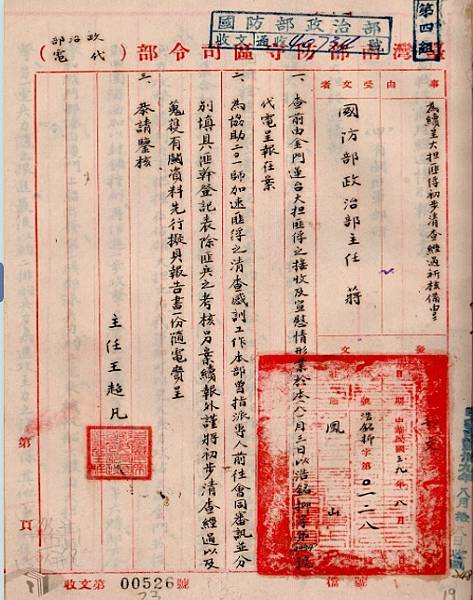 國防部政治部
收文通收
號
第四組
臺灣南部防守區司令部（政治部代電）
事由
為續呈大担匪俘初步清查經過祈核備由
受文者
國防部政治部主任 蔣
日期 中華民國三九年八月 日
字號 浩銘挪字第〇一二八號
鳳山
一、查前由金門運台大担匪俘之接收及宣慰情形業於本(八)月三日以浩銘挪字第 號
代電呈報在案
二、為協助二〇一師加速匪俘之清查感訓工作本部曾指派專人前往會同審訊並分
別填具匪幹登記表除匪兵之考核另案續報外謹將初步清查經過以及
蒐獲有關資料先行擬具報告書一份隨電賫呈
三、恭請鑒核
主任王超凡
第 頁
收文第 00526 號
19